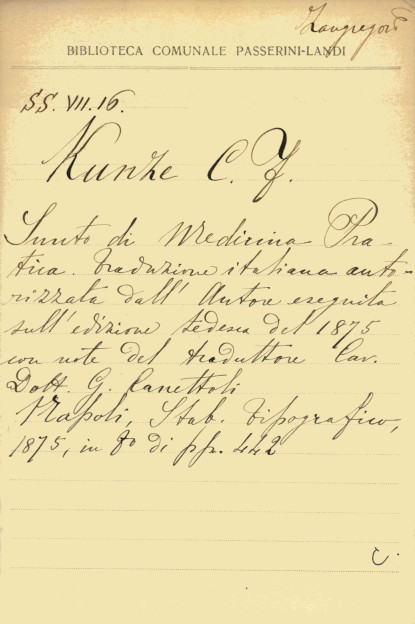 BIBLIOTECA COMUNALE PASSERINI-LANDI
SS. VII. 16.
Kunze C. F.
Sunto di Medicina Pra-
tica. Traduzione italiana auto-
rizzata dall' Autore eseguita
sull' edizione tedesca del 1875
con note del traduttore Cav.
Dott. G. Canettoli
Napoli, Stab. Tipografico,
1875, in 8o di pp. 442
C.